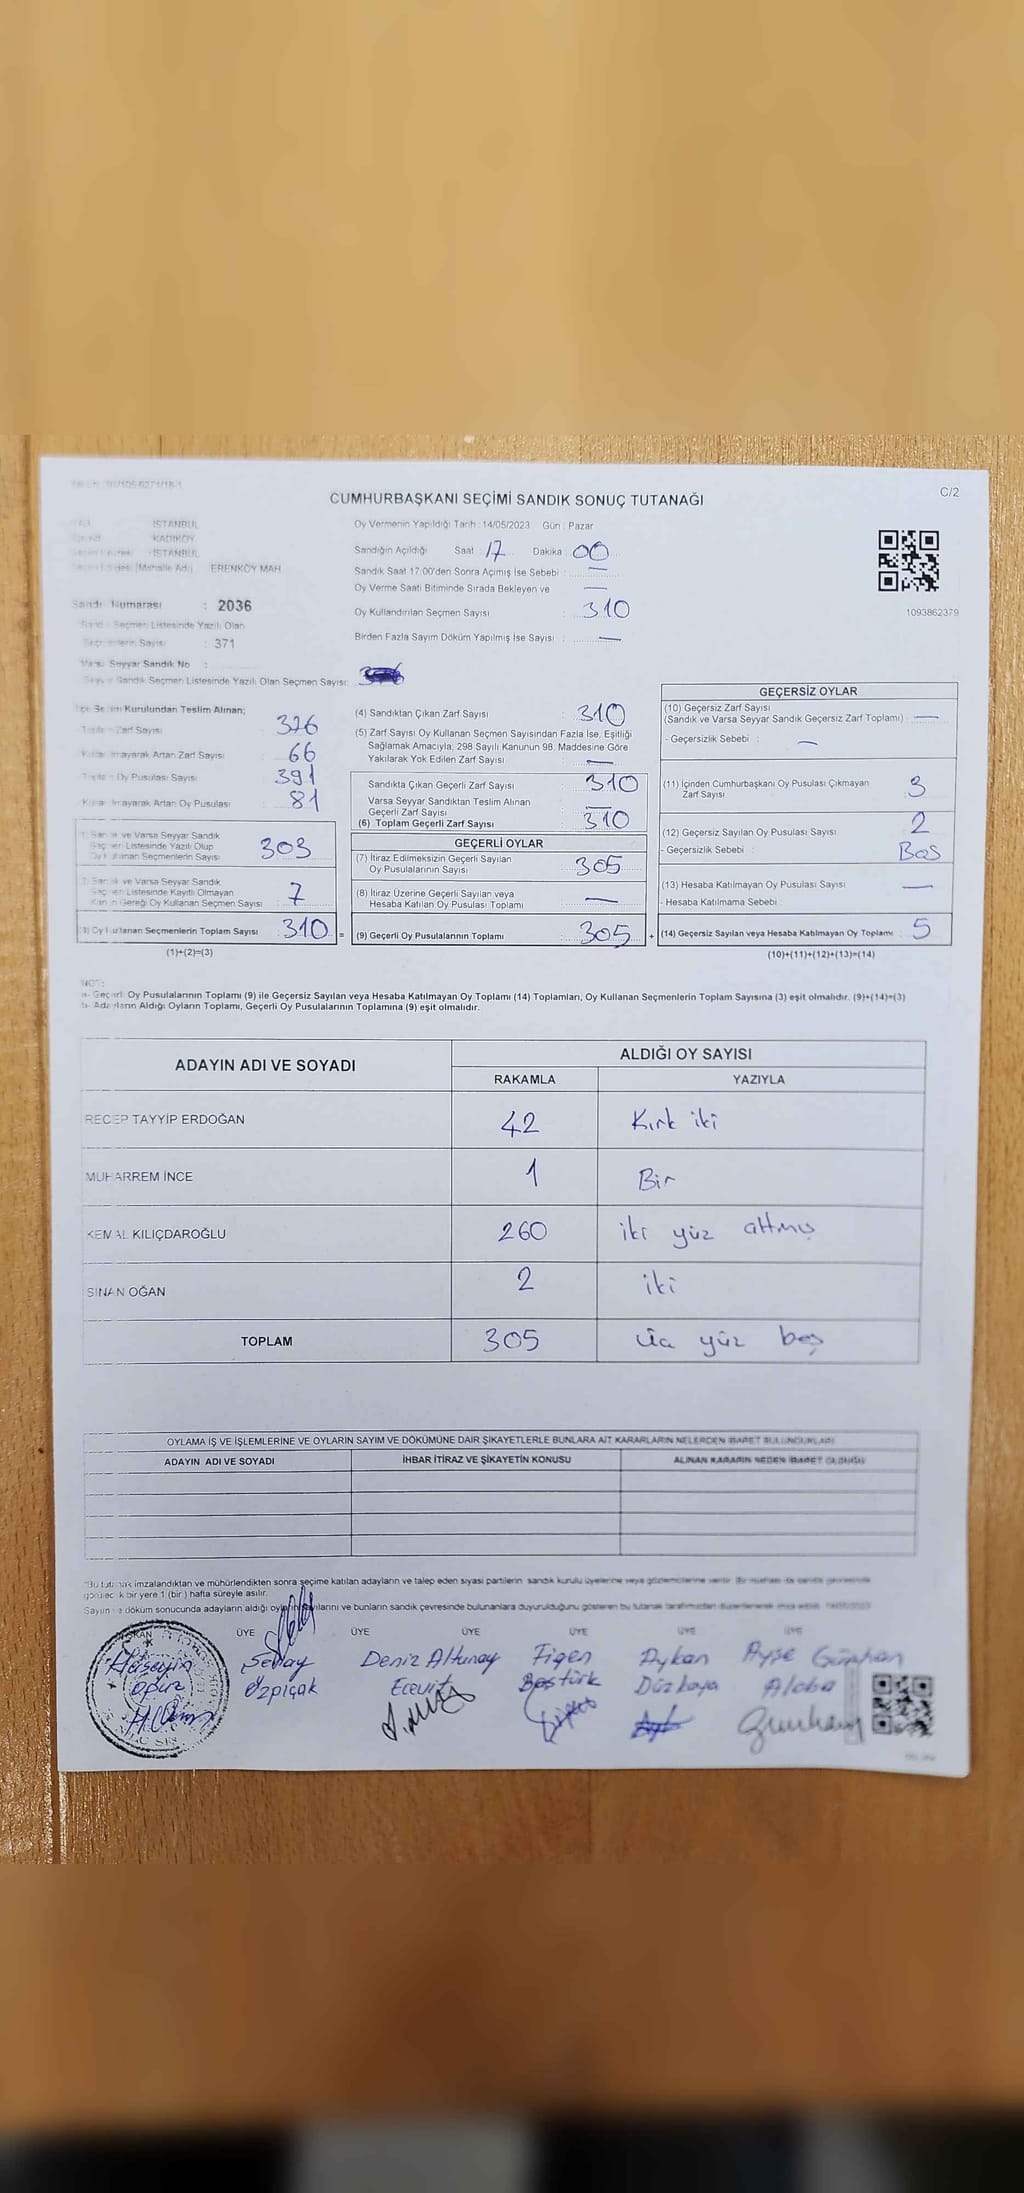 C/2
CUMHURBAŞKANI SEÇİMİ SANDIK SONUÇ TUTANAĞI
İSTANBUL
KADIKÖY
İSTANBUL
ERENKÖY MAH
Sandık Numarası : 2036
Sandık Seçmen Listesinde Yazılı Olan
Seçmenlerin Sayısı : 371
Varsa Seyyar Sandık No :
Seyyar Sandık Seçmen Listesinde Yazılı Olan Seçmen Sayısı:
Oy Vermenin Yapıldığı Tarih : 14/05/2023 Gün : Pazar
Sandığın Açıldığı Saat : 17 Dakika : 00
Sandık Saat 17:00'den Sonra Açımış İse Sebebi : —
Oy Verme Saati Bitiminde Sırada Bekleyen ve —
Oy Kullandırılan Seçmen Sayısı : 310
Birden Fazla Sayım Döküm Yapılmış İse Sayısı : —
1093862379
İlçe Seçim Kurulundan Teslim Alınan;
Toplam Zarf Sayısı : 376
Kullanılmayarak Artan Zarf Sayısı : 66
Toplam Oy Pusulası Sayısı : 391
Kullanılmayarak Artan Oy Pusulası : 81
(1) Sandık ve Varsa Seyyar Sandık
Seçmen Listesinde Yazılı Olup
Oy Kullanan Seçmenlerin Sayısı : 303
(2) Sandık ve Varsa Seyyar Sandık
Seçmen Listesinde Kayıtlı Olmayan
Kanun Gereği Oy Kullanan Seçmen Sayısı : 7
(3) Oy Kullanan Seçmenlerin Toplam Sayısı : 310 =
(1)+(2)=(3)
(4) Sandıktan Çıkan Zarf Sayısı : 310
(5) Zarf Sayısı Oy Kullanan Seçmen Sayısından Fazla İse, Eşitliği
Sağlamak Amacıyla; 298 Sayılı Kanunun 98. Maddesine Göre
Yakılarak Yok Edilen Zarf Sayısı : —
Sandıkta Çıkan Geçerli Zarf Sayısı : 310
Varsa Seyyar Sandıktan Teslim Alınan
Geçerli Zarf Sayısı : —
(6) Toplam Geçerli Zarf Sayısı : 310
GEÇERLİ OYLAR
(7) İtiraz Edilmeksizin Geçerli Sayılan
Oy Pusulalarının Sayısı : 305
(8) İtiraz Üzerine Geçerli Sayılan veya
Hesaba Katılan Oy Pusulası Toplamı : —
(9) Geçerli Oy Pusulalarının Toplamı : 305 +
GEÇERSİZ OYLAR
(10) Geçersiz Zarf Sayısı
(Sandık ve Varsa Seyyar Sandık Geçersiz Zarf Toplamı) : —
- Geçersizlik Sebebi : —
(11) İçinden Cumhurbaşkanı Oy Pusulası Çıkmayan
Zarf Sayısı : 3
(12) Geçersiz Sayılan Oy Pusulası Sayısı : 2
- Geçersizlik Sebebi : Boş
(13) Hesaba Katılmayan Oy Pusulası Sayısı : —
- Hesaba Katılmama Sebebi :
(14) Geçersiz Sayılan veya Hesaba Katılmayan Oy Toplamı : 5
(10)+(11)+(12)+(13)=(14)
NOT:
a- Geçerli Oy Pusulalarının Toplamı (9) ile Geçersiz Sayılan veya Hesaba Katılmayan Oy Toplamı (14) Toplamları, Oy Kullanan Seçmenlerin Toplam Sayısına (3) eşit olmalıdır. (9)+(14)=(3)
b- Adayların Aldığı Oyların Toplamı, Geçerli Oy Pusulalarının Toplamına (9) eşit olmalıdır.
ADAYIN ADI VE SOYADI
ALDIĞI OY SAYISI
RAKAMLA YAZIYLA
RECEP TAYYİP ERDOĞAN 42 Kırk iki
MUHARREM İNCE 1 Bir
KEMAL KILIÇDAROĞLU 260 iki yüz altmış
SİNAN OĞAN 2 iki
TOPLAM 305 üç yüz beş
OYLAMA İŞ VE İŞLEMLERİNE VE OYLARIN SAYIM VE DÖKÜMÜNE DAİR ŞİKAYETLERLE BUNLARA AİT KARARLARIN NELERDEN İBARET BULUNDUKLARI
ADAYIN ADI VE SOYADI İHBAR İTİRAZ VE ŞİKAYETİN KONUSU ALINAN KARARIN NEDEN İBARET OLDUĞU
*Bu tutanak imzalandıktan ve mühürlendikten sonra seçime katılan adayların ve talep eden siyasi partilerin sandık kurulu üyelerine veya gözlemcilerine verilir. Bir nüshası da sandık çevresinde
görülecek bir yere 1 (bir) hafta süreyle asılır.
Sayım ve döküm sonucunda adayların aldığı oyların sayılarını ve bunların sandık çevresinde bulunanlara duyurulduğunu gösteren bu tutanak tarafımızdan düzenlenerek imza edildi.
BAŞKAN ÜYE ÜYE ÜYE ÜYE ÜYE ÜYE
Hüseyin Senay Deniz Altunay Figen Aykan Ayşe Günhan
Özpıçak Ecevit Baştürk Düzkaya Alaba